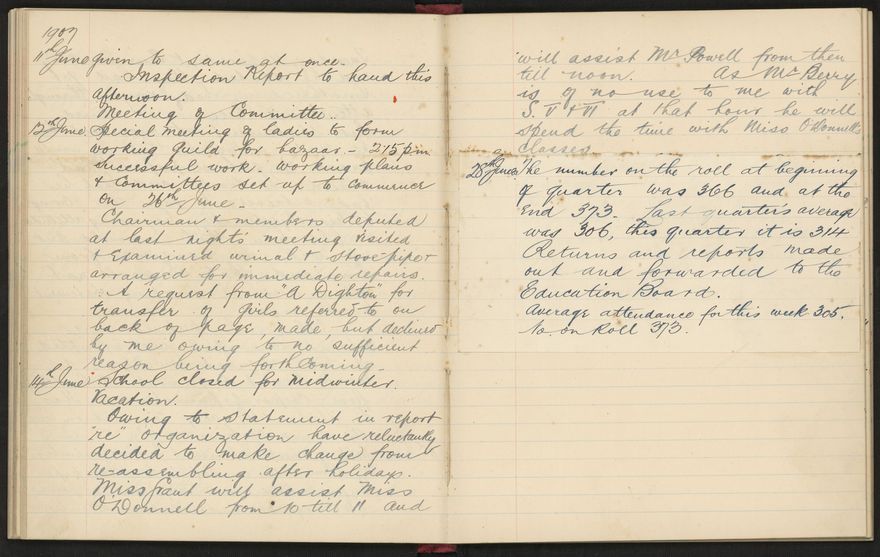 1907
11th June given to same at once.
Inspection Report to hand this
afternoon.
Meeting of Committee.
12th June Special meeting of ladies to form
working Guild for bazaar - 2.15 p.m.
successful work. Working plans
& Committees set up to commence
on 26th June.
Chairman & members deputed
at last night's meeting visited
& Examined urinal & stove piper
arranged for immediate repairs.
A request from "A Dighton" for
transfer of girls referred to on
back of page, made, but declined
by me owing to no sufficient
reason being forthcoming.
14th June School closed for Midwinter.
Vacation.
Owing to statement in report
"re" organization have reluctantly
decided to make change from
re-assembling after holidays.
Miss Grant will assist Miss
O'Donnell from 10 till 11 and
will assist Mr Powell from then
till noon. As Mr Berry
is of no use to me with
S. V & VI at that hour he will
spend the time with Miss O'Donnell's
Classes.
28th June. The number on the roll at beginning
of quarter was 366 and at the
end 373. Last quarter's average
was 306, this quarter it is 314
Returns and reports made
out and forwarded to the
Education Board.
Average attendance for this week 305.
No. on Roll 373.